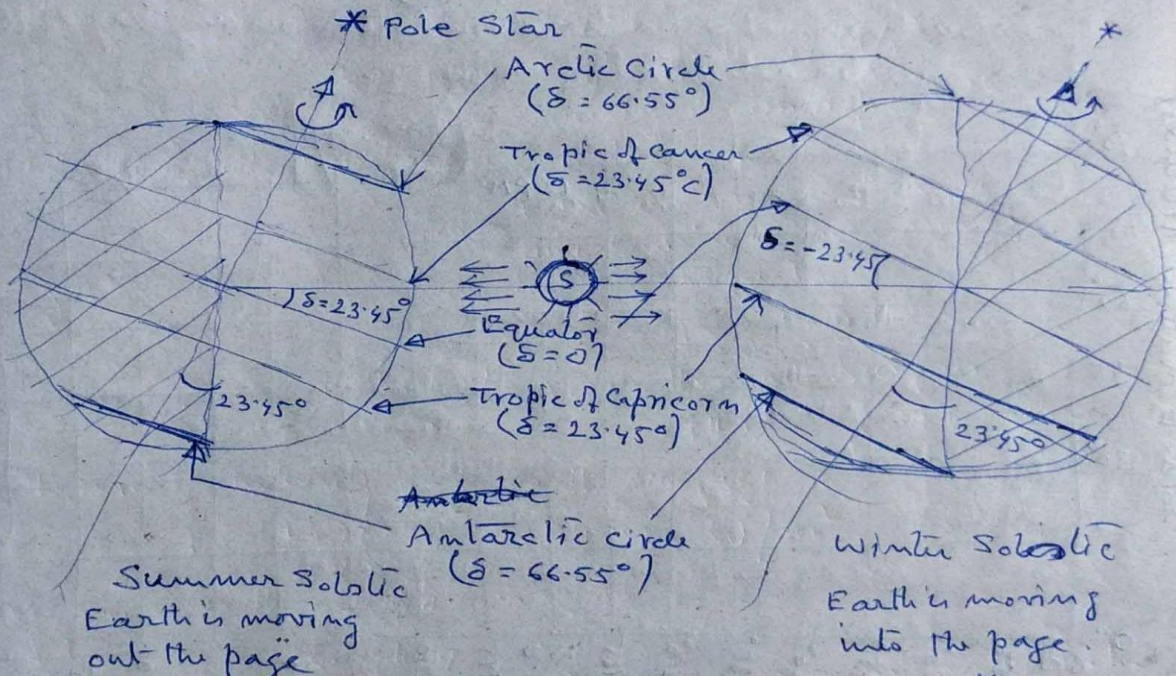 * Pole Star
*
Arctic Circle
(δ = 66.55°)
Tropic of Cancer
(δ = 23.45°c)
δ = -23.45
S
δ = 23.45°
Equator
(δ = 0)
23.45°
Tropic of Capricorn
(δ = 23.45°)
23.45°
Antarctic circle
(δ = 66.55°)
Summer Solstic
Earth is moving
out the page
Winter Solestic
Earth is moving
into the page.